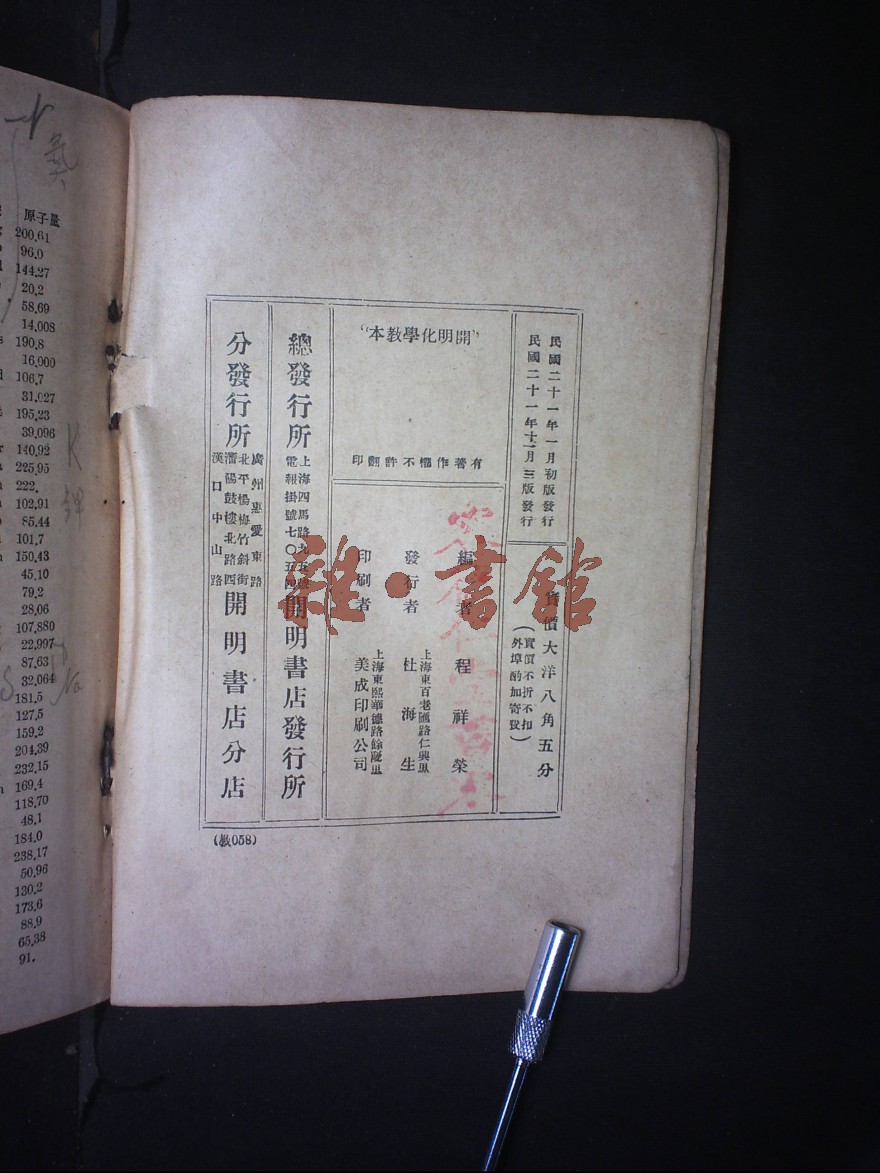 民國二十一年一月初版發行
民國二十一年十一月三版發行
實價大洋八角五分
(實價不折不扣
外埠酌加寄費)
"開明化學教本"
有著作權不許翻印
編者 程祥榮
發行者 杜海生
上海東百老匯路仁興里
印刷者 美成印刷公司
上海東熙華德路餘慶里
總發行所
上海四馬路
電報掛號七〇五四
開明書店發行所
分發行所
廣州惠愛東路
北平楊梅竹斜街
瀋陽鼓樓北路西
漢口中山路
開明書店分店
(教058)
雜·書館
N
氮
K
鉀
S
Na
原子量
200.61
96.0
144.27
20.2
58.69
14.008
190.8
16.000
106.7
31.027
195.23
39.096
140.92
225.95
222.
102.91
85.44
101.7
150.43
45.10
79.2
28.06
107.880
22.997
87.63
32.064
181.5
127.5
159.2
204.39
232.15
169.4
118.70
48.1
184.0
238.17
50.96
130.2
173.6
88.9
65.38
91.